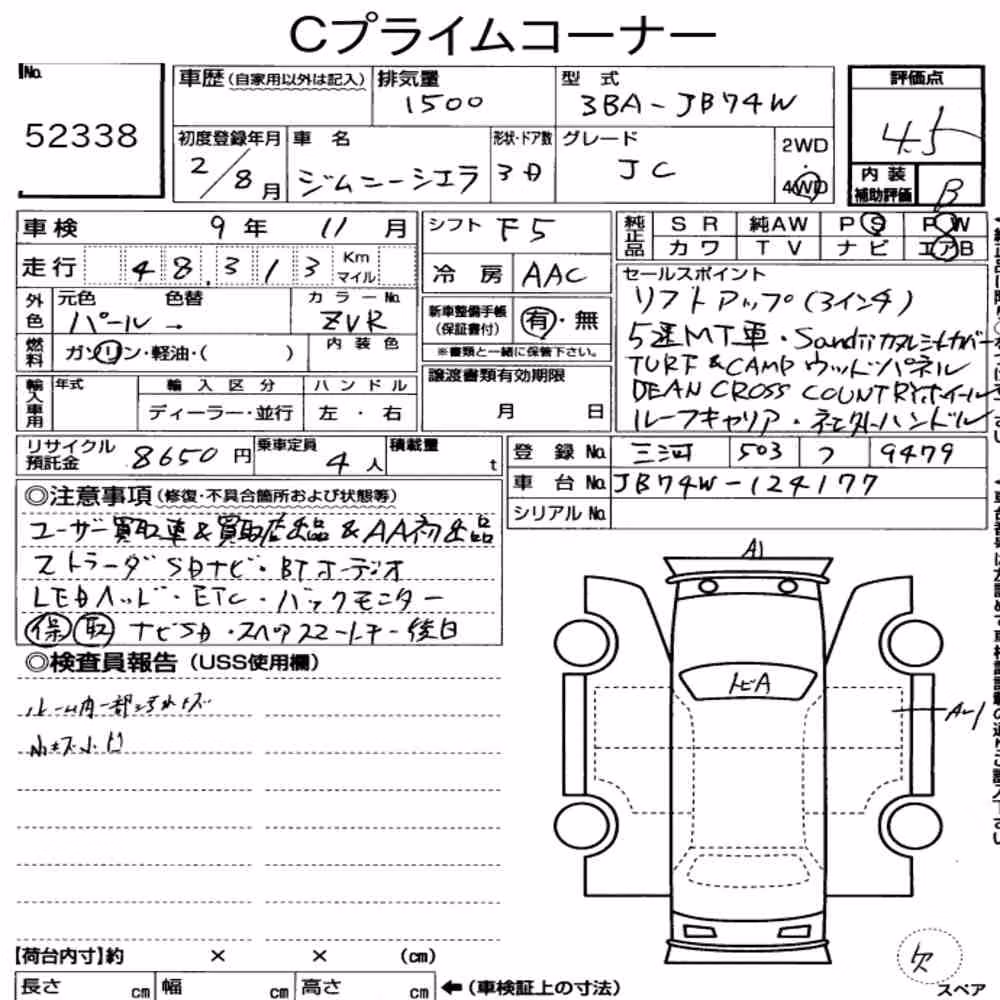 Cプライムコーナー
No. 52338
車歴(自家用以外は記入)
排気量 1500
型式 3BA-JB74W
評価点 4.5
初度登録年月 2/8月
車名 ジムニーシエラ
形状・ドア数 3D
グレード JC
2WD・4WD
内装補助評価 B
車検 9年 11月
シフト F5
純正品 SR 純AW PS PW
カワ TV ナビ エアB
走行 48,313 Km マイル
冷房 AAC
セールスポイント
リフトアップ(3インチ)
5速MT車・
TURF&CAMPウッドパネル
DEAN CROSS COUNTRYホイール
ルーフキャリア・
外色 元色 パール→ 色替 カラーNo. ZVR
新車整備手帳(保証書付) 有・無
※書類と一緒に保管下さい。
燃料 ガソリン・軽油・( ) 内装色
譲渡書類有効期限 月 日
輸入車用 年式 輸入区分 ハンドル
ディーラー・並行 左・右
リサイクル預託金 8650円
乗車定員 4人
積載量 t
登録No. 三河 503 つ 9479
車台No. JB74W-124177
シリアルNo.
◎注意事項(修復・不具合箇所および状態等)
ユーザー買取車&買取店出品&AA初出品
ストラーダSDナビ・BTオーディオ
LEDヘッド・ETC・バックモニター
保 取 ナビSD・スペアスマートキー後日
◎検査員報告(USS使用欄)
ルーム内一部
小キズ小凹
A1
トビA
A-1
【荷台内寸】約 × × (cm)
長さ cm 幅 cm 高さ cm ←(車検証上の寸法)
欠
スペア